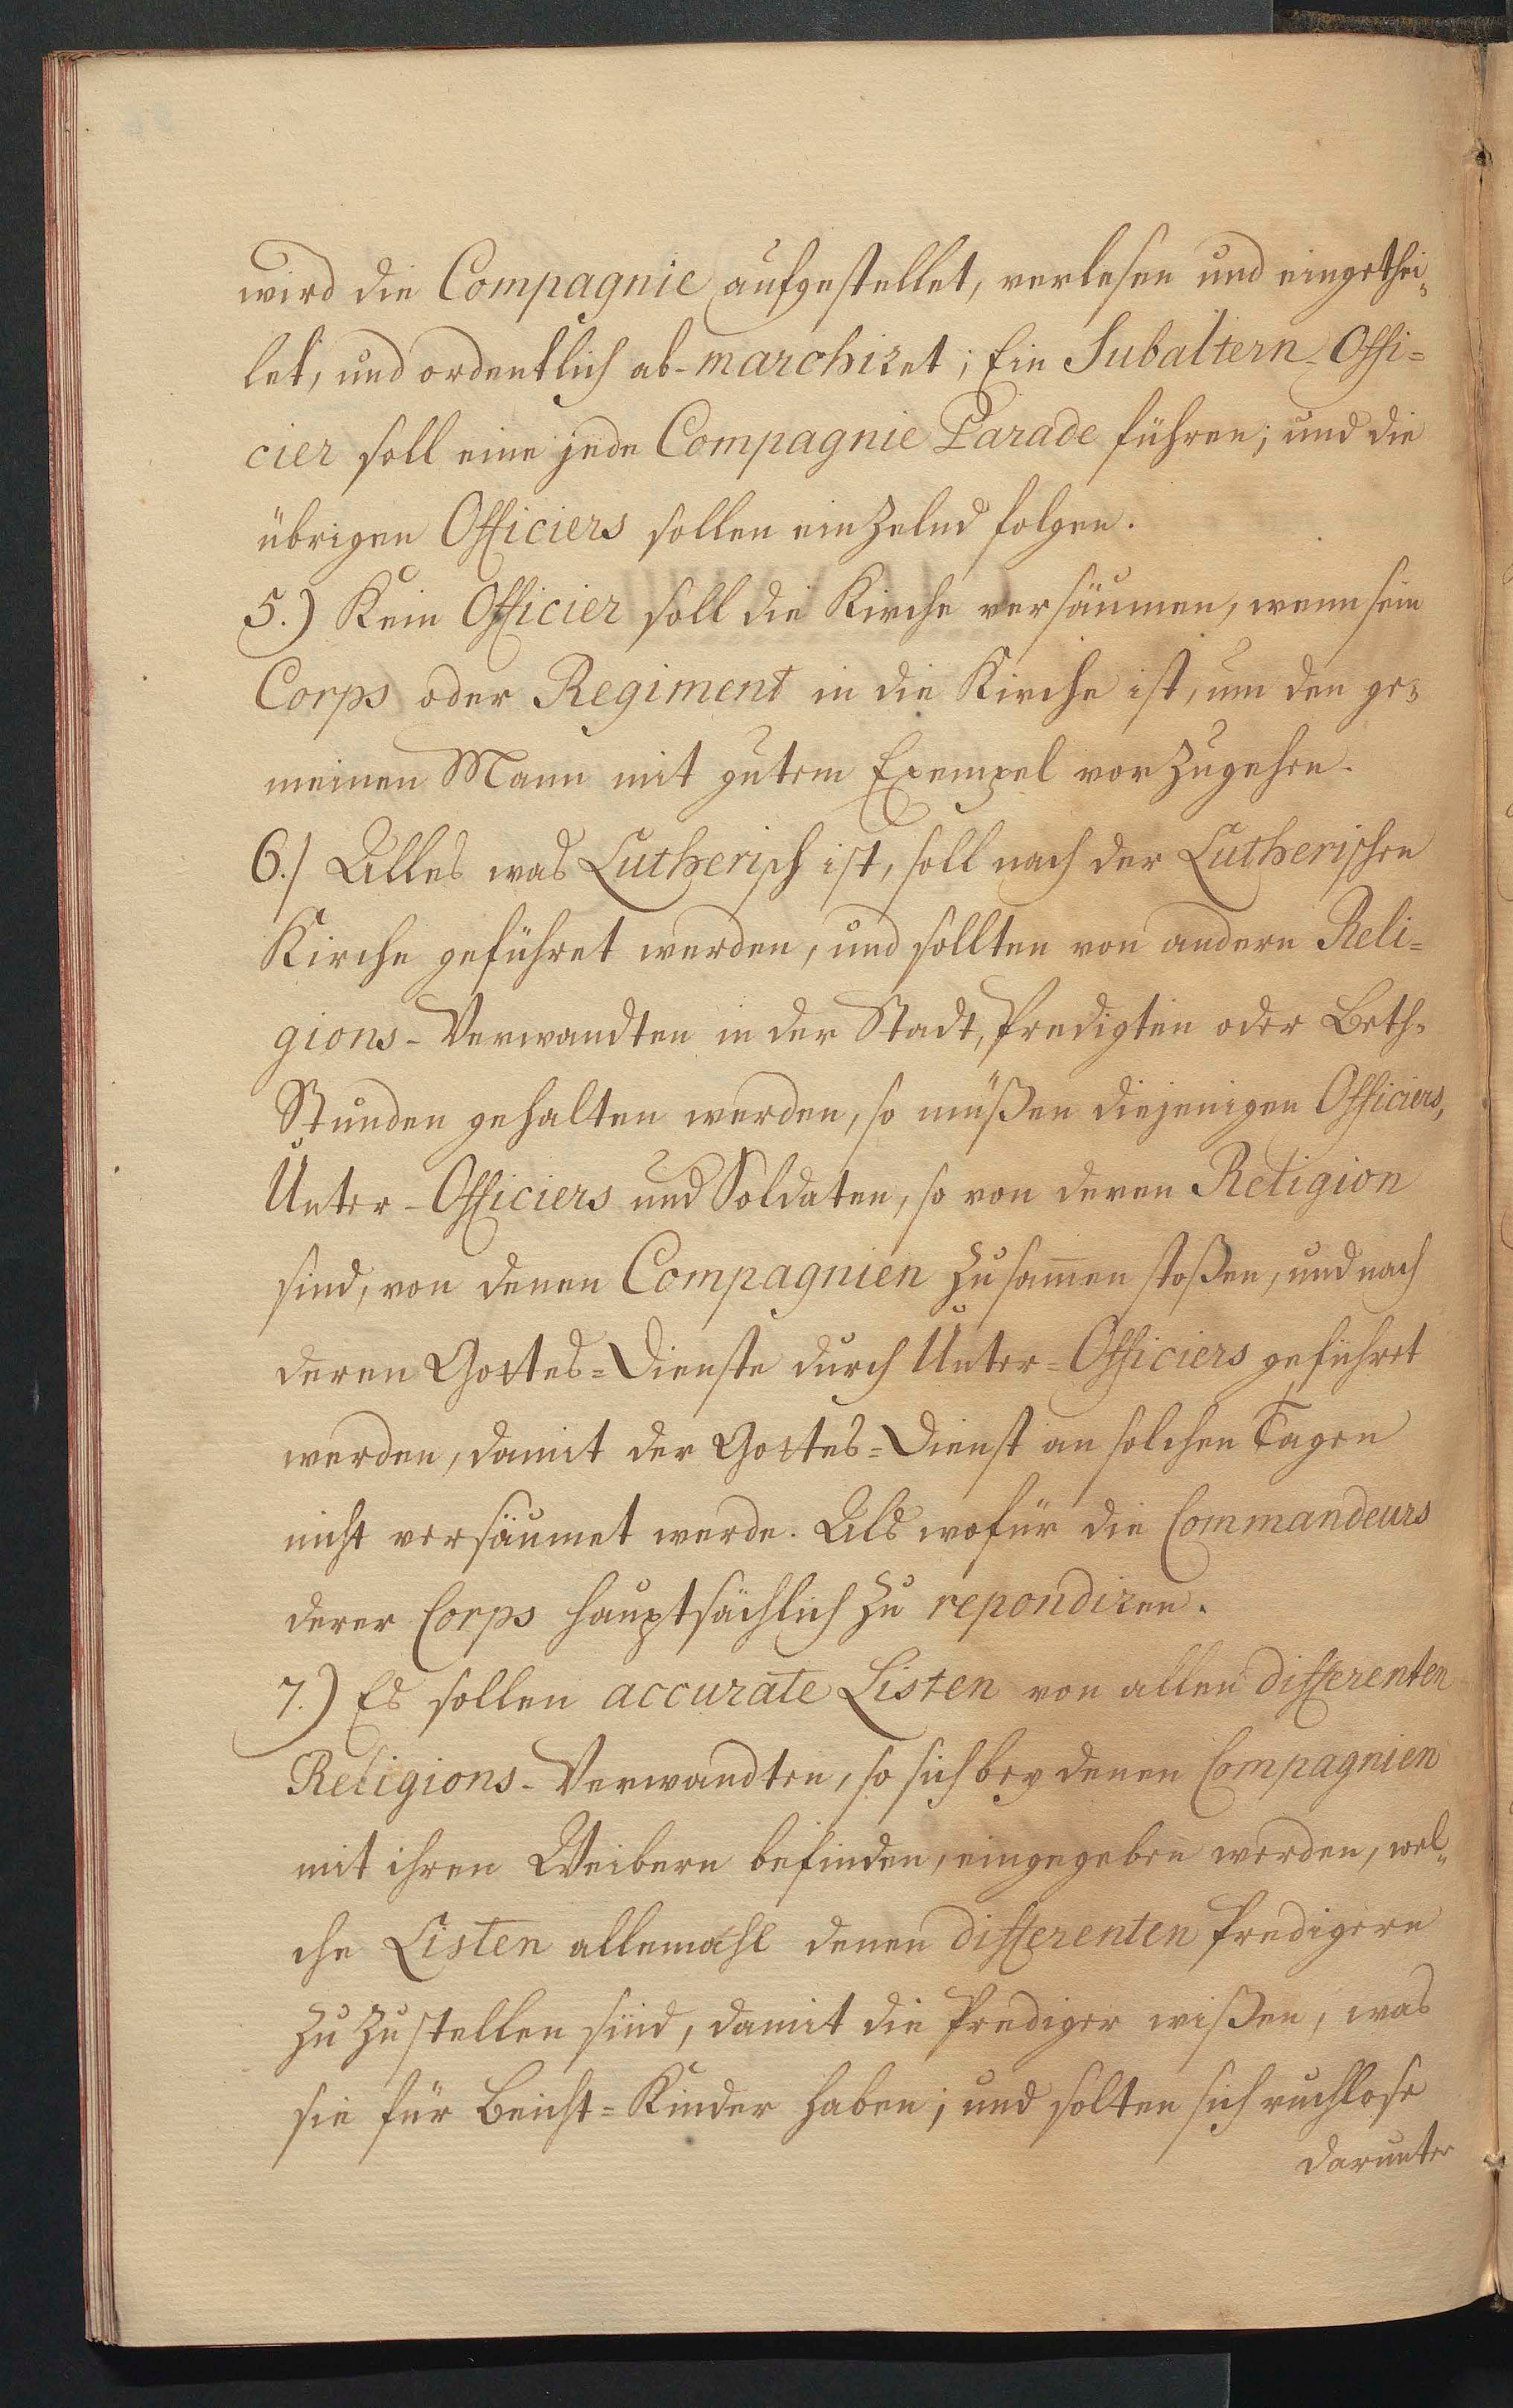 wird die Compagnie aufgestellet, verlesen und eingethei„
let, und ordentlich ab-marchiret; Ein Subaltern-Offi=
cier soll eine jede Compagnie Parade führen; und die
übrigen Officiers sollen einzelnd folgen.
5.) Kein Officier soll die Kirche versäumen, wenn sein
Corps oder Regiment in die Kirche ist, um den ge=
meinen Mann mit gutem Exempel vorzugehen.
6.) Alles was Lutherisch ist, soll nach der Lutherischen
Kirche geführet werden, und sollten von andern Reli=
gions-Verwandten in der Stadt, Predigten oder Beth-
Stunden gehalten werden, so müßen diejenigen Officiers,
Unter-Officiers und Soldaten, so von deren Religion
sind, von denen Compagnien zusam̄en stoßen, und nach
deren Gottes=Dienste durch Unter=Officiers geführet
werden, damit der Gottes=Dienst an solchen Tagen
nicht versäumet werde. Als wofür die Commandeurs
derer Corps hauptsächlich zu repondiren.
7.) Es sollen accurate Listen von allen differenten
Religions-Verwandten, so sich bey denen Compagnien
mit ihren Weibern befinden, eingegeben werden, wel„
che Listen allemahl denen differenten Predigern
zuzustellen sind, damit die Prediger wißen, was
sie für Beicht=Kinder haben; und solten sich ruchlose
darunter